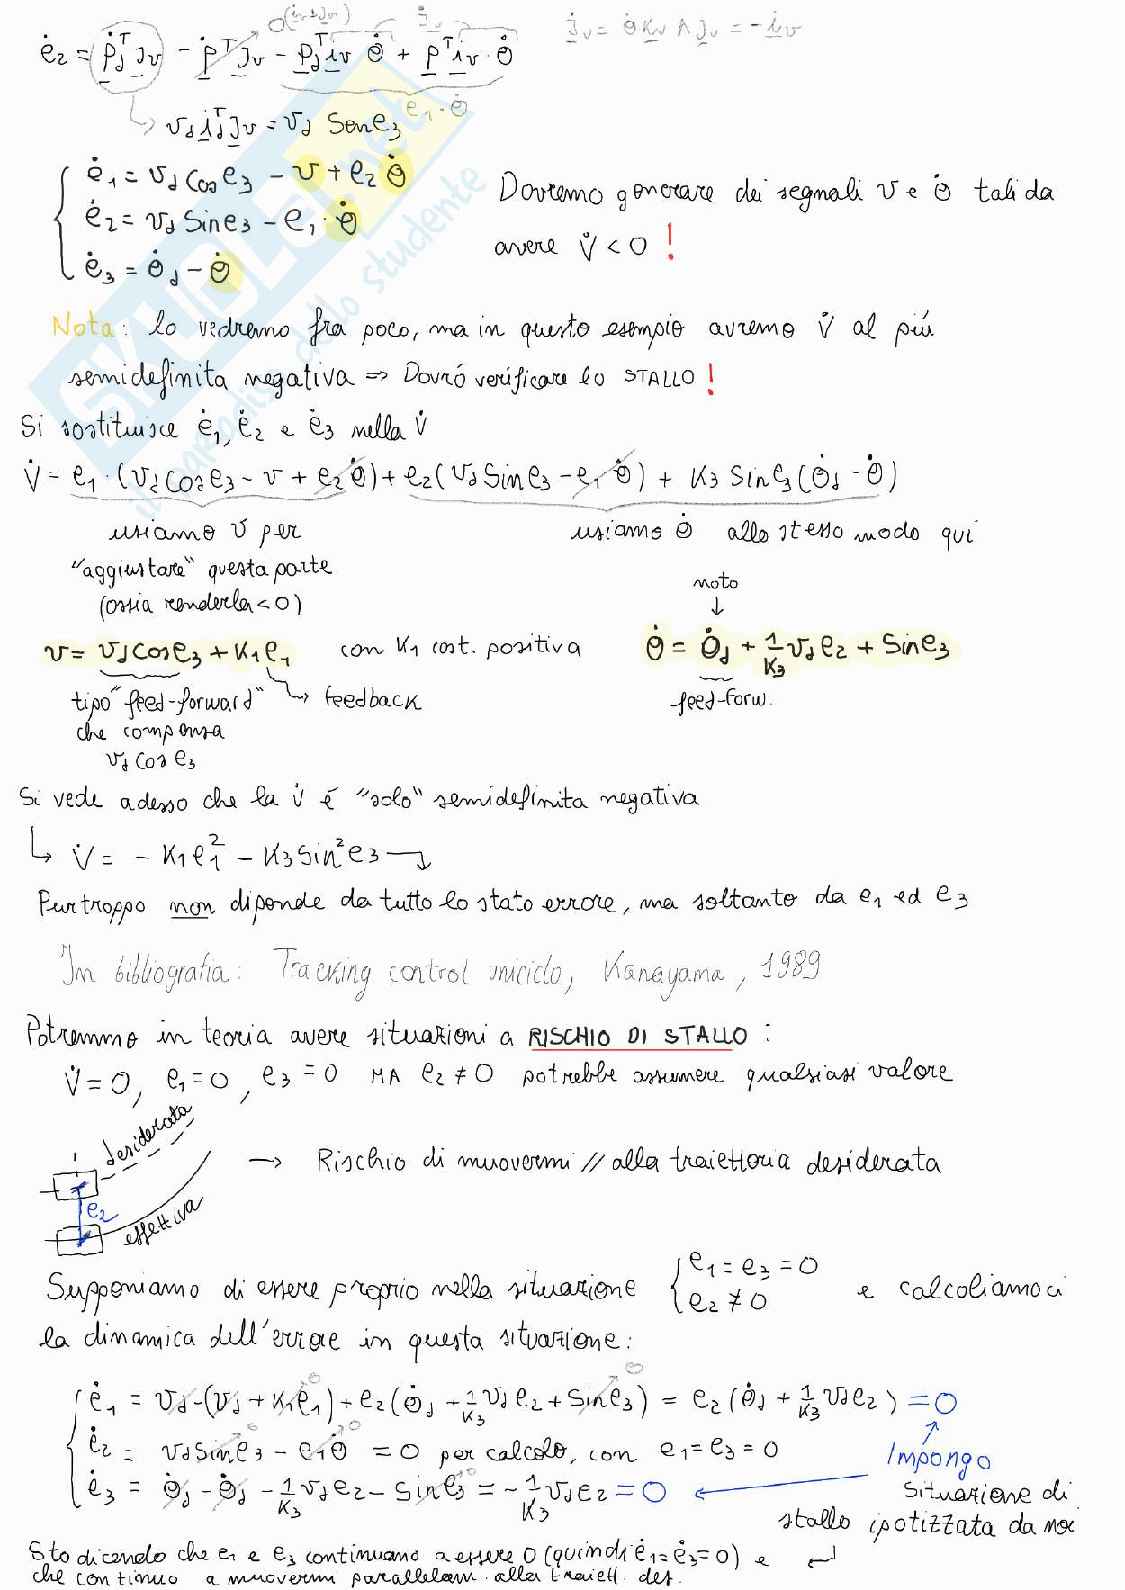 ė₂ = ṗ_dᵀ j_v − ṗᵀ j_v − p_dᵀ i_v θ̇ + pᵀ i_v · θ̇
j̇_v = θ̇ k_v ∧ j_v = − i_v
e₁ · θ̇
↳ v_d i_dᵀ j_v = v_d Sen e₃
ė₁ = v_d Cos e₃ − v + e₂ θ̇
ė₂ = v_d Sin e₃ − e₁ · θ̇
ė₃ = θ̇_d − θ̇
Dovremo generare dei segnali v e θ̇ tali da
avere V̇ < 0 !
Nota: lo vedremo fra poco, ma in questo esempio avremo V̇ al più
semidefinita negativa ⇒ Dovrò verificare lo STALLO !
Si sostituisce ė₁, ė₂ e ė₃ nella V̇
V̇ = e₁ · (v_d Cos e₃ − v + e₂ θ̇) + e₂ (v_d Sin e₃ − e₁ θ̇) + K₃ Sin e₃ (θ̇_d − θ̇)
usiamo v per
"aggiustare" questa parte
(ossia renderla < 0)
usiamo θ̇ allo stesso modo qui
noto
↓
v = v_d cos e₃ + K₁ e₁ con K₁ cost. positiva
θ̇ = θ̇_d + 1/K₃ v_d e₂ + Sin e₃
tipo "feed-forward"
che compensa
v_d Cos e₃
↳ feedback
feed-forw.
Si vede adesso che la V̇ è "solo" semidefinita negativa
↳ V̇ = − K₁ e₁² − K₃ Sin² e₃
Purtroppo non dipende da tutto lo stato errore, ma soltanto da e₁ ed e₃
In bibliografia: Tracking control uniciclo, Kanayama, 1989
Potremmo in teoria avere situazioni a RISCHIO DI STALLO :
V̇ = 0, e₁ = 0, e₃ = 0 MA e₂ ≠ 0 potrebbe assumere qualsiasi valore
desiderata
→ Rischio di muovermi // alla traiettoria desiderata
e₂
effettiva
Supponiamo di essere proprio nella situazione { e₁ = e₃ = 0
e₂ ≠ 0
e calcoliamoci
la dinamica dell'errore in questa situazione:
ė₁ = v_d − (v_d + K₁ e₁) + e₂ (θ̇_d + 1/K₃ v_d e₂ + Sin e₃) = e₂ (θ̇_d + 1/K₃ v_d e₂) = 0
ė₂ = v_d Sin e₃ − e₁ θ̇ = 0 per calcolo, con e₁ = e₃ = 0
ė₃ = θ̇_d − θ̇_d − 1/K₃ v_d e₂ − Sin e₃ = − 1/K₃ v_d e₂ = 0
Impongo
situazione di
stallo ipotizzata da noi
Sto dicendo che e₁ e e₃ continuano a essere 0 (quindi ė₁ = ė₃ = 0) e
che continuo a muovermi parallelam. alla traiett. des.
SKUOLA.net
il paradiso dello studente